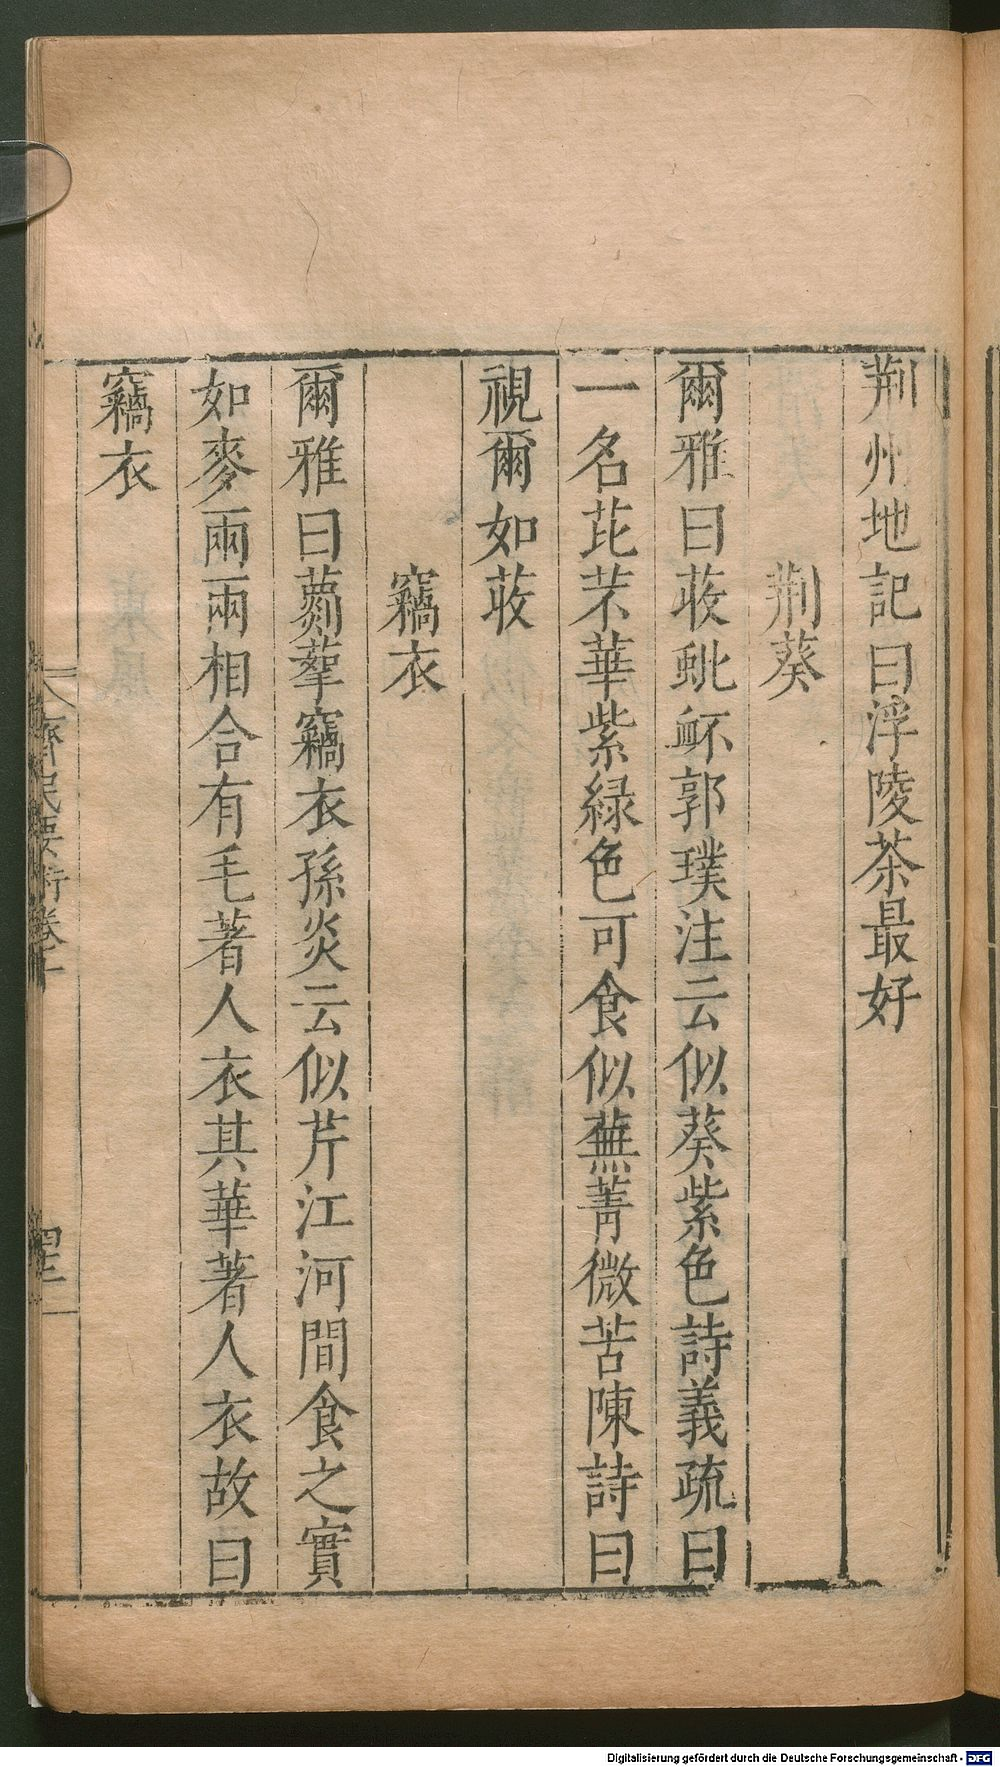 荆州地記曰浮陵茶最好
荆葵
爾雅曰荍蚍衃郭璞注云似葵紫色詩義疏曰
一名芘芣華紫緑色可食似蕪菁微苦陳詩曰
視爾如荍
竊衣
爾雅曰蘮蒘竊衣孫炎云似芹江河間食之實
如麥兩兩相合有毛著人衣其華著人衣故曰
竊衣
齊民要術卷十
Digitalisierung gefördert durch die Deutsche Forschungsgemeinschaft - DFG